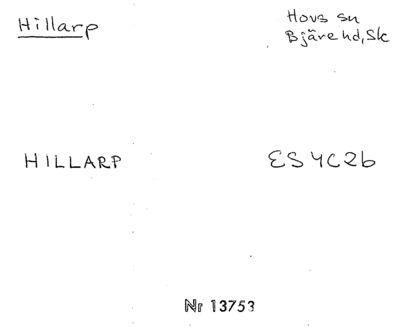 Hillarp
Hovs sn
Bjäre hd, Sk
HILLARP
ES 4C2b
Nr 13753